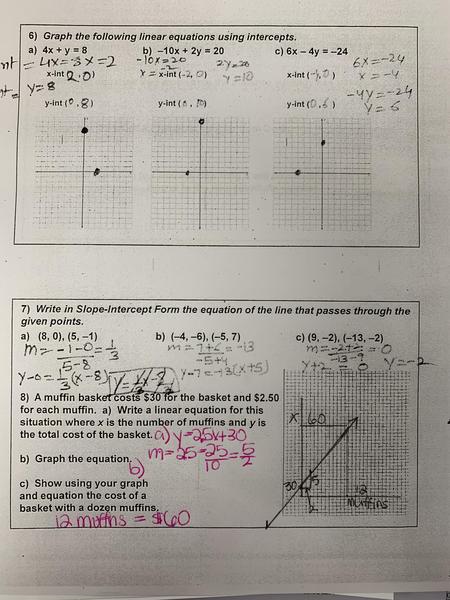 6) Graph the following linear equations using intercepts.
a) 4x + y = 8 b) –10x + 2y = 20 c) 6x – 4y = –24
x-int (2, 0) x-int (-2, 0) 2y=20 6x=-24
y=10 x-int (-4, 0) x=-4
y=8 -4y=-24
y-int (0, 8) y-int (0, 10) y-int (0, 6) y=6
7) Write in Slope-Intercept Form the equation of the line that passes through the
given points.
a) (8, 0), (5, –1) b) (–4, –6), (–5, 7) c) (9, –2), (–13, –2)
m= -1-0/5-8 = 1/3 m= 7+6/-5+4 = -13 m= -2+2/-13-9 = 0
y-0= 1/3(x-8) y-7=-13(x+5) y+2 = 0 y=-2
8) A muffin basket costs $30 for the basket and $2.50
for each muffin. a) Write a linear equation for this
situation where x is the number of muffins and y is
the total cost of the basket. a) y=2.5x+30
b) Graph the equation. b) m=2.5=25/10=5/2
c) Show using your graph
and equation the cost of a
basket with a dozen muffins.
12 muffins = $60
60
30 5
2
12
muffins